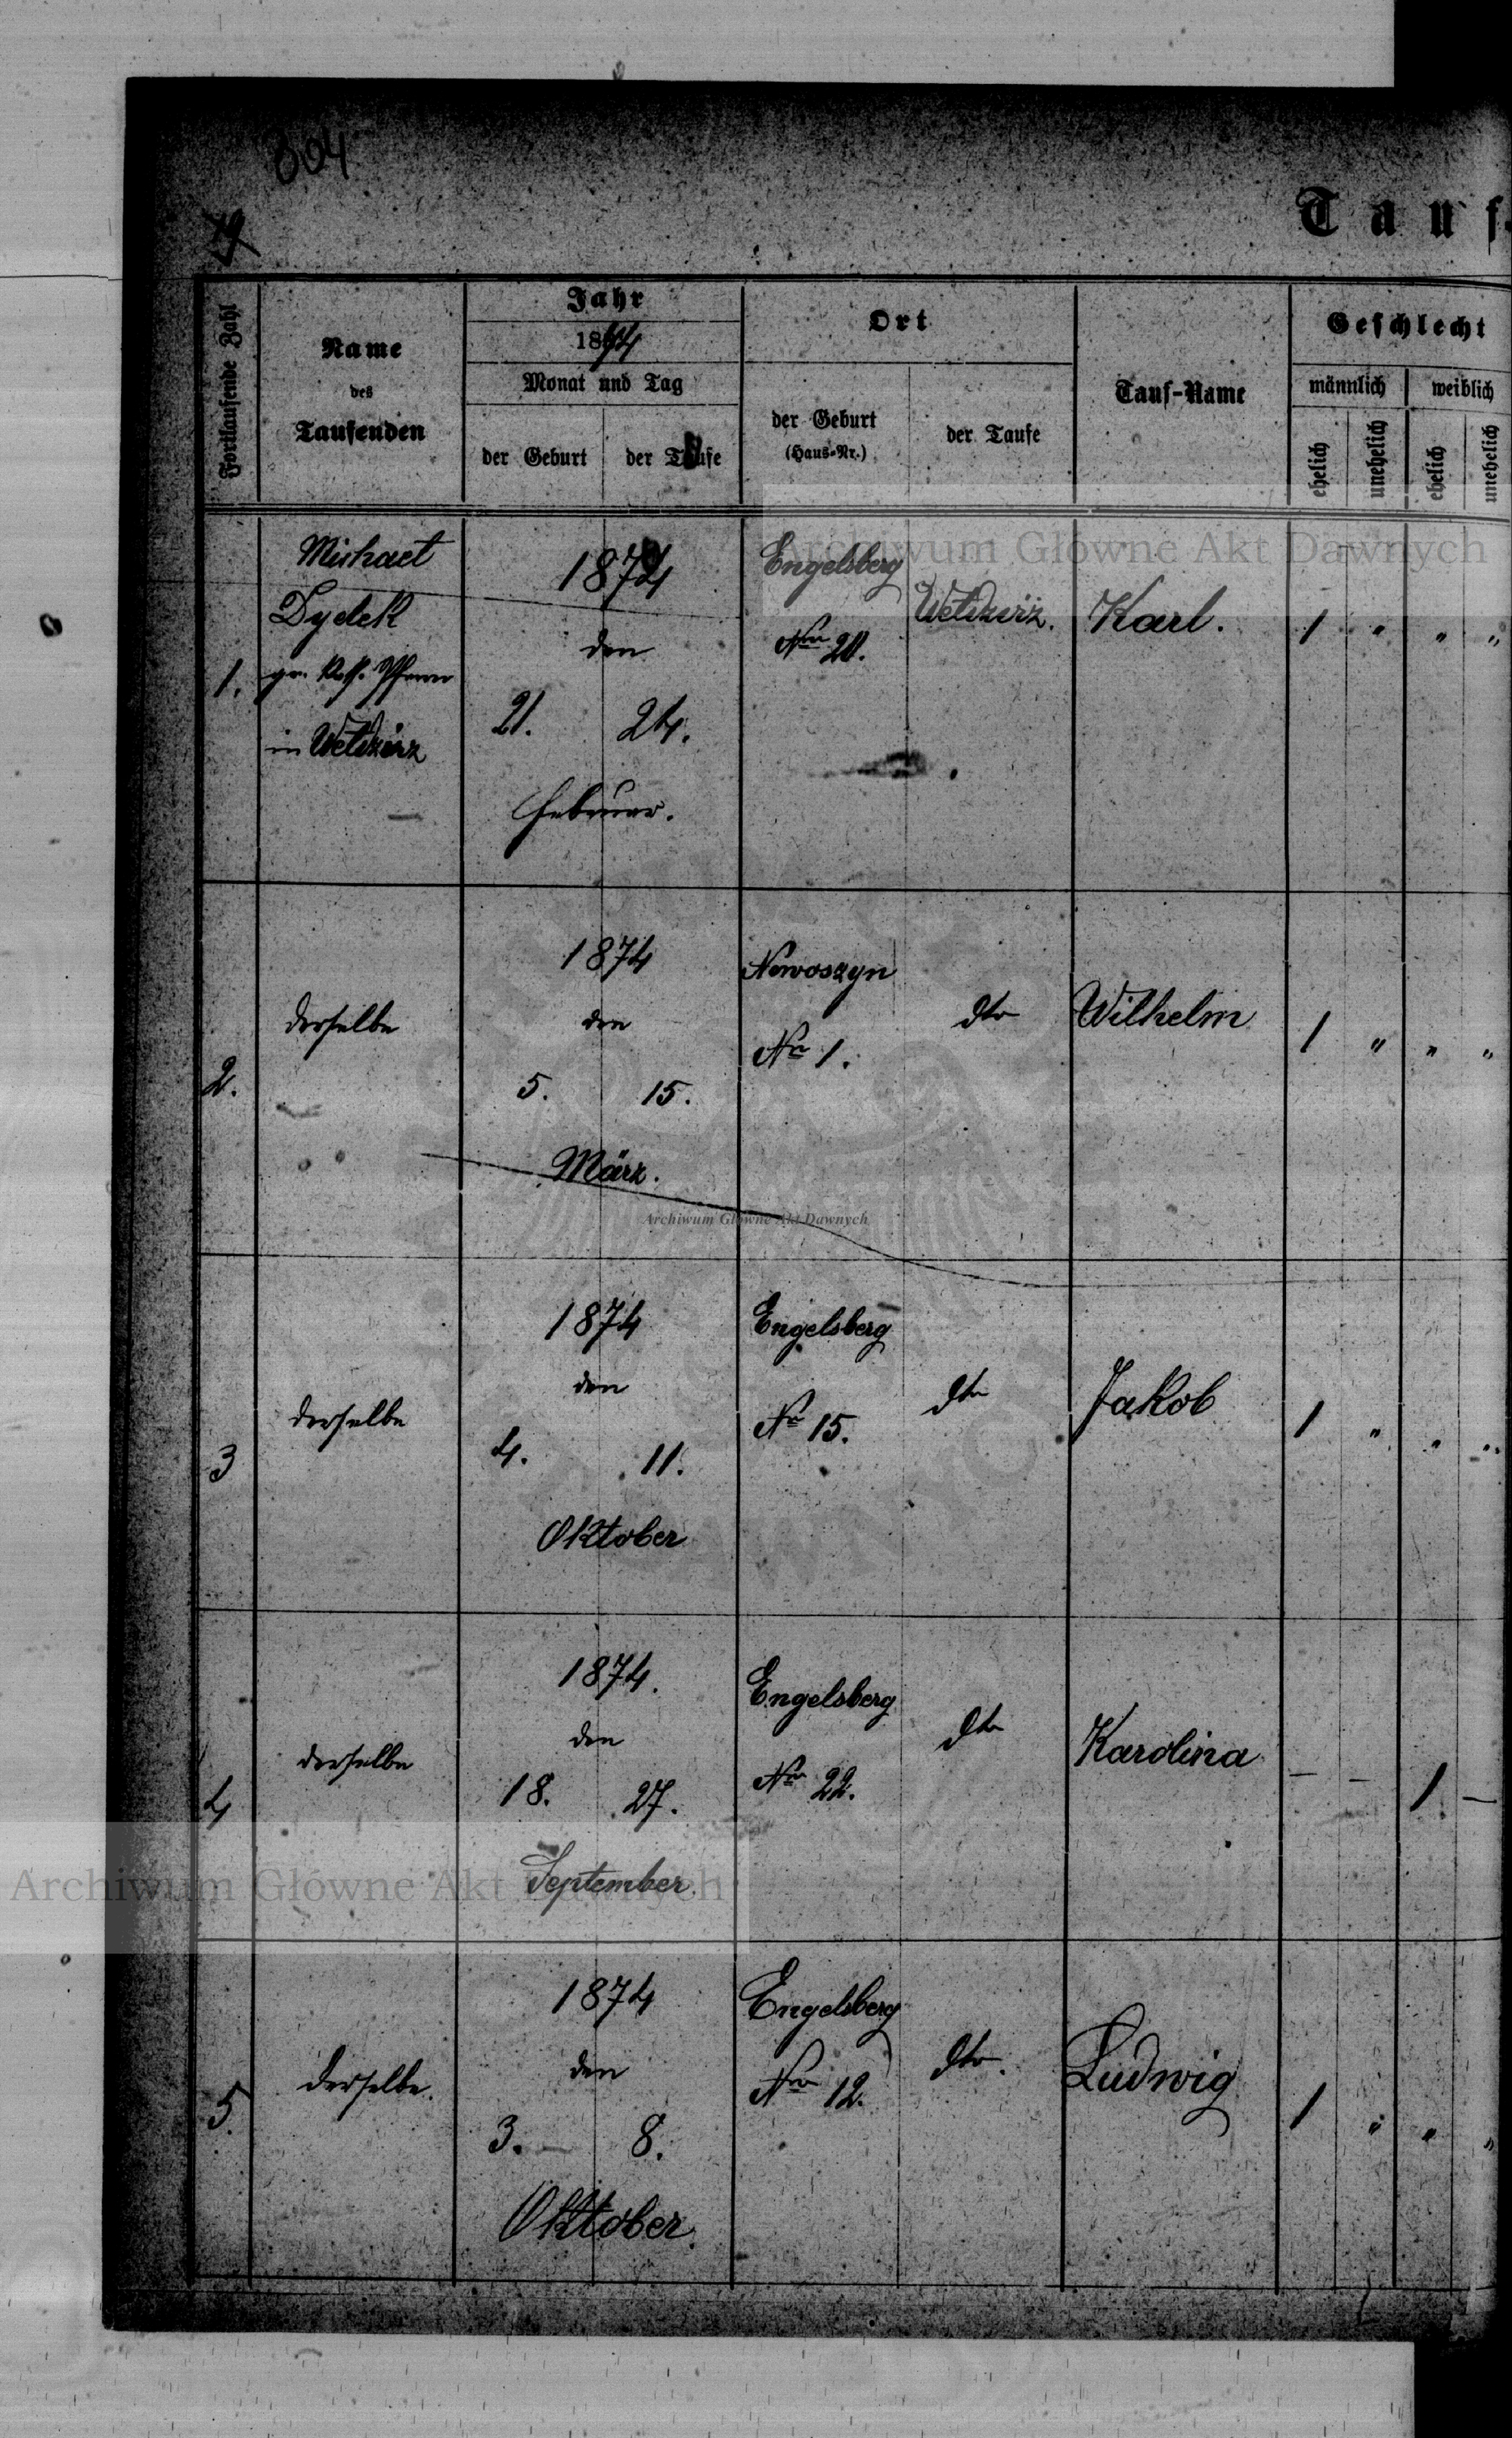 804
79
Tauf-
Fortlaufende Zahl
Name
des
Taufenden
Jahr
1874
Monat und Tag
der Geburt
der Taufe
Ort
der Geburt
(Haus-Nr.)
der Taufe
Tauf-Name
Geschlecht
männlich
weiblich
ehelich
unehelich
ehelich
unehelich
1.
Michael
Dydek
gr. kath. Pfarrer
in Weldzirz
1874
den
21. 24.
Februar.
Engelsberg
Nro 20.
Weldzirz.
Karl.
1 " " "
2.
derselbe
1874
den
5. 15.
März.
Nowoszyn
Nro 1.
dto
Wilhelm
1 " " "
3
derselbe
1874
den
4. 11.
Oktober
Engelsberg
Nro 15.
dto
Jakob
1 " " "
4
derselbe
1874.
den
18. 27.
September
Engelsberg
Nro 22.
dto
Karolina
— — 1 —
5.
derselbe.
1874
den
3. — 8.
Oktober
Engelsberg
Nro 12.
dto.
Ludwig
1 " " "
Archiwum Główne Akt Dawnych
Archiwum Główne Akt Dawnych
Archiwum Główne Akt Dawnych